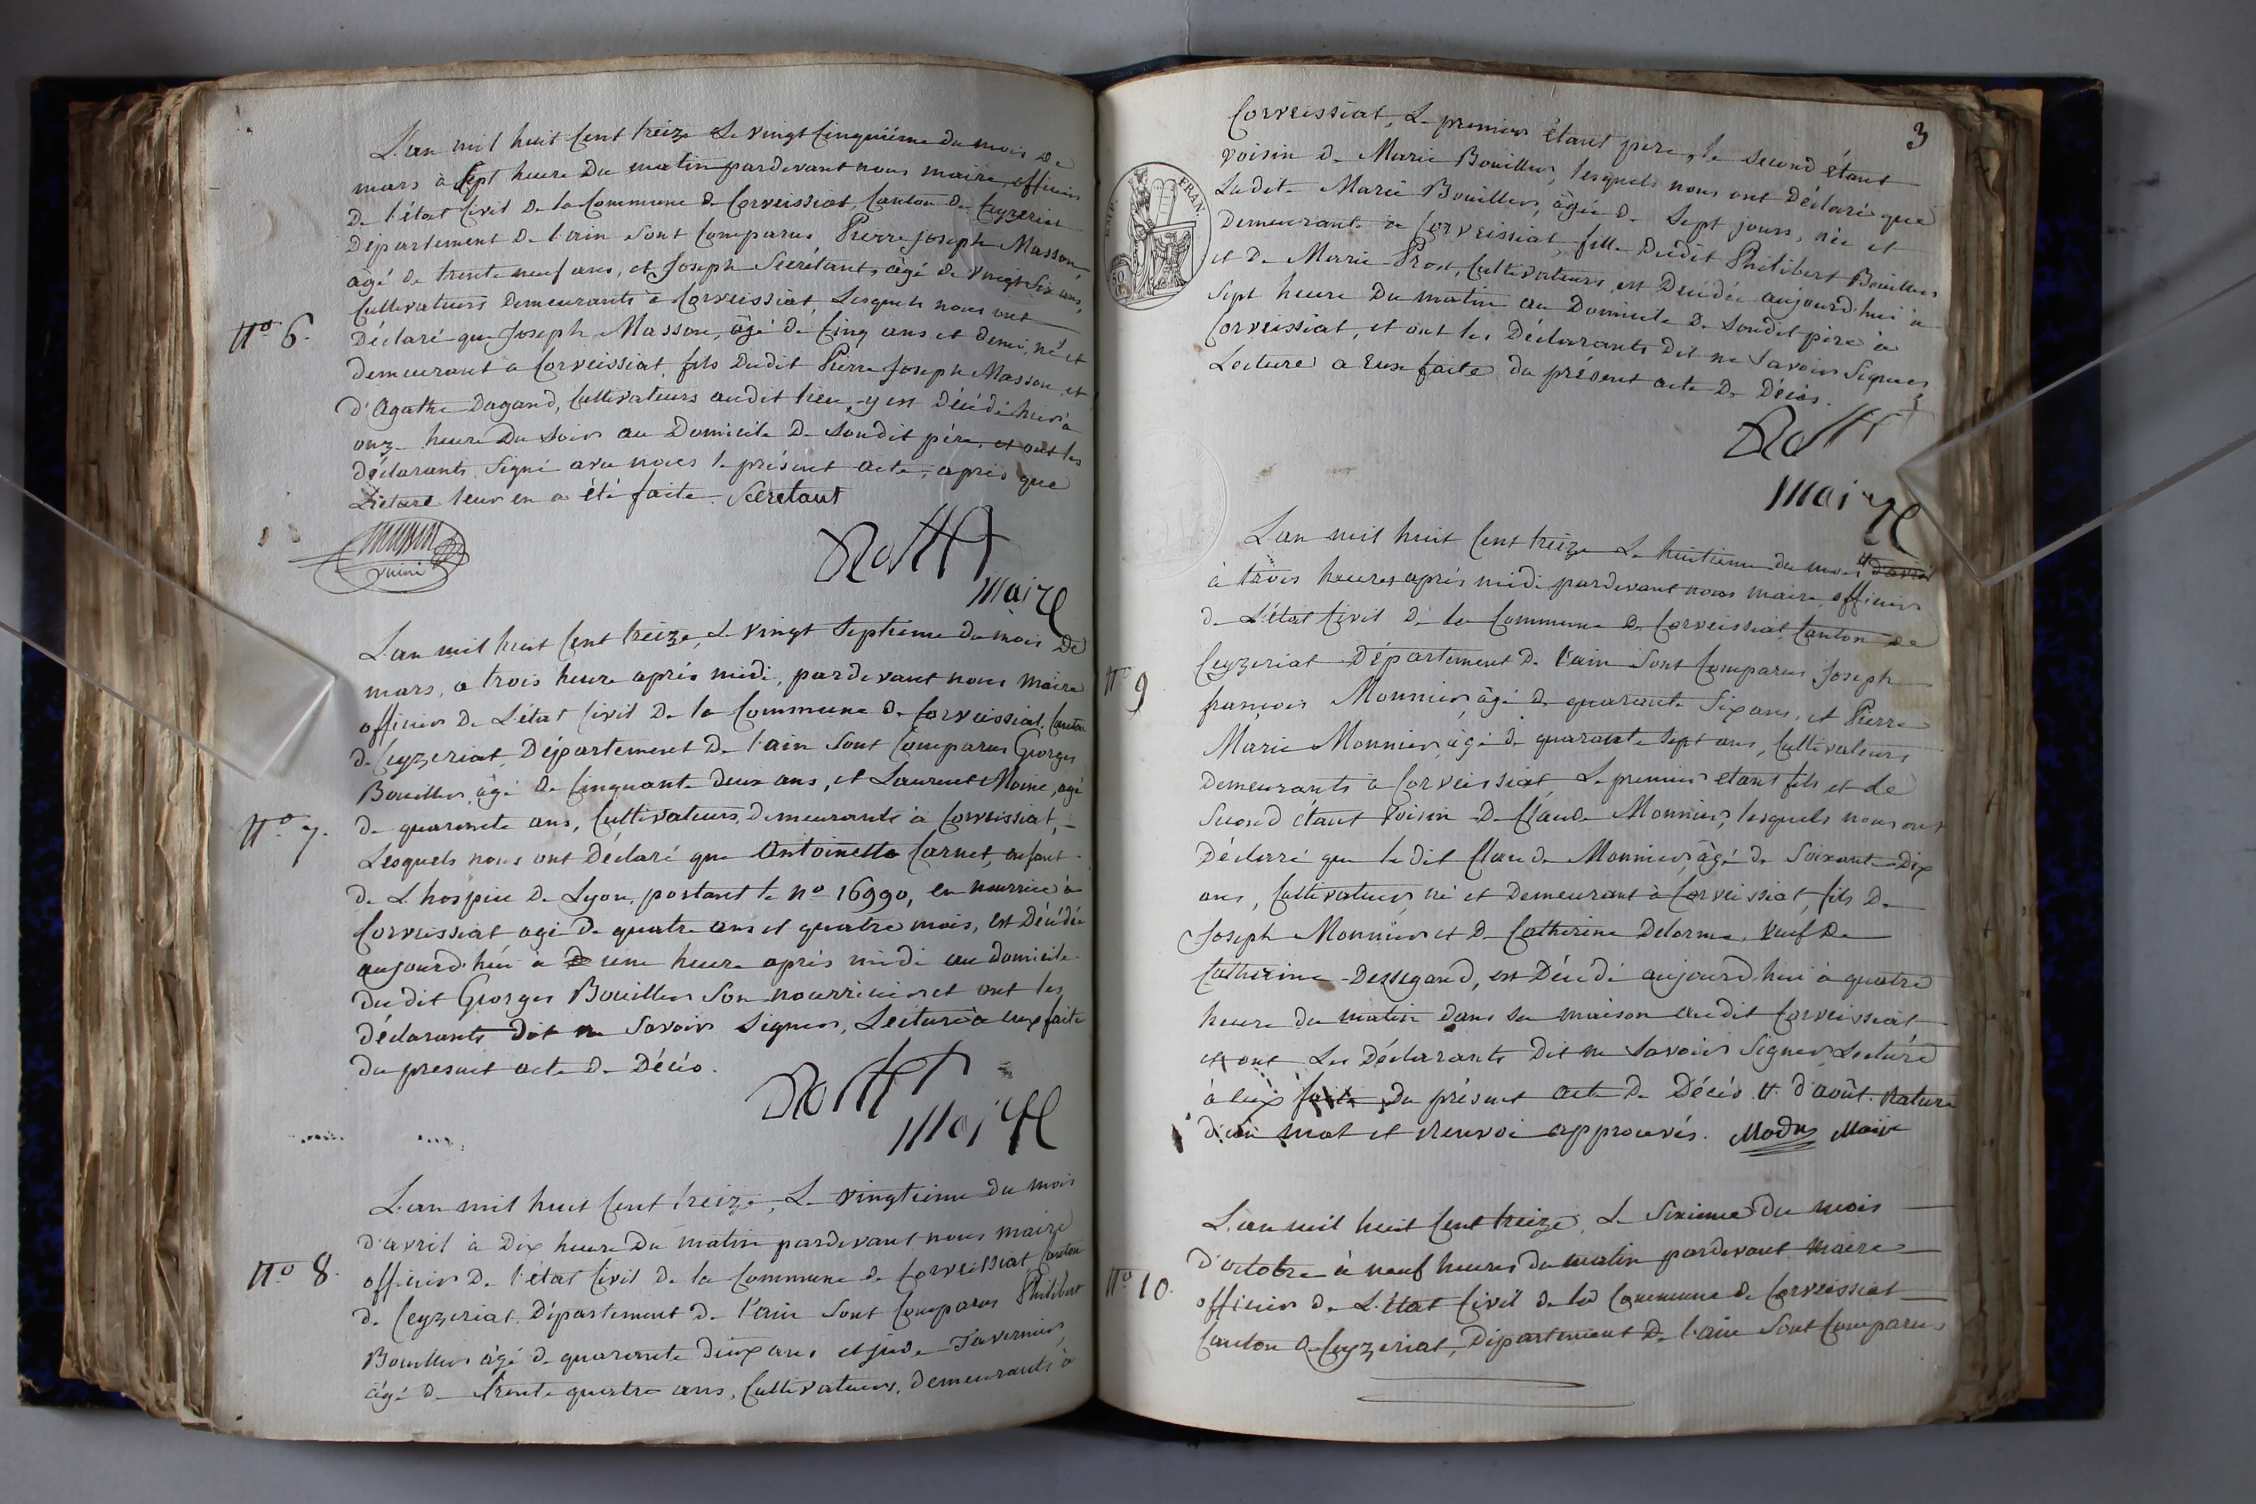 L'an mil huit Cent treize Le vingt Cinquième du mois de
mars à Sept heure Du matin pardevant nous maire officier
De l'état Civil De la Commune De Corveissiat, Canton De Ceyzeriat
Département De l'ain Sont Comparus, Pierre joseph Masson,
âgé de trente neuf ans, et Joseph Secretant, âgé de vingt Six ans,
Cultivateurs Demeurants à Corveissiat, Lesquels nous ont
N.º 6.
Déclaré que Joseph Masson, âgé de Cinq ans et demi, né et
demeurant a Corveissiat, fils Dudit Pierre Joseph Masson et
d'Agathe Dagand, Cultivateurs audit lieu, y est Décédé hier à
onze heure Du Soir au Domicile De Soudit père, et ont les
déclarants Signé avec nous le présent acte, après que
Lecture leur en a été faite. Secretant
Masson
Maire
L'an mil huit Cent treize, Le vingt Septieme du mois De
mars, a trois heure après midi, pardevant nous Maire
officier De L'état Civil De la Commune De Corveissiat, Canton
De Ceyzeriat, Département De l'ain Sont Comparus Georges
Bouiller, âgé De Cinquante deux ans, et Laurent Moine, âgé
N.º 7.
De quarante ans, Cultivateurs, Demeurants à Corveissiat,
Lesquels nous ont Déclaré que Antoinette Carnet, enfant
De L'hospice De Lyon, portant le nº 16990, en nourrice à
Corveissiat agé De quatre ans et quatre mois, est Décédée
aujourd'hui à une heure après midi au domicile
Du dit Georges Bouiller Son nourricier et ont les
déclarants Dit ne Savoir Signer, Lecture à eux faite
Du présent acte De Décès.
Maire
L'an mil huit Cent treize, Le vingtième Du mois
d'avril à Dix heure Du matin pardevant nous maire
N.º 8.
officier De l'état Civil De la Commune De Corveissiat Canton
De Ceyzeriat, Département De l'ain Sont Comparus Philibert
Bouiller âgé De quarante deux ans et jude Tavernier,
âgé De trente quatre ans, Cultivateurs, Demeurants à
3
EMP. FRAN.
Corveissiat, Le premier étant père, le Second étant
voisin De Marie Bouiller, lesquels nous ont Déclaré que
Ladite Marie Bouiller, âgée De Sept jours, née et
Demeurante à Corveissiat, fille Dudit Philibert Bouiller
et De Marie Prost, Cultivateurs, est Décédée aujourd'hui à
Sept heure Du matin au Domicile De Soudit père à
Corveissiat, et ont les Déclarants Dit ne Savoir Signer
Lecture a eux faite du présent acte De Décès.
Maire
L'an mil huit Cent treize Le huitième du mois d'avril
à trois heures après midi pardevant nous maire officier
De L'état Civil De la Commune De Corveissiat, Canton De
N.º 9
Ceyzeriat Département De l'ain Sont Comparus Joseph
françois Monnier âgé De quarante Six ans, et Pierre
Marie Monnier, âgé De quarante Sept ans, Cultivateurs
Demeurants à Corveissiat, Le premier etant fils et Le
Second étant Voisin De Claude Monnier, lesquels nous ont
Déclaré que le dit Claude Monnier, âgé De Soixante Dix
ans, Cultivateur, né et Demeurant à Corveissiat, fils De
Joseph Monnier et De Catherine Delorme, veuf De
Catherine Dessegand, est Décédé aujourd'hui à quatre
heure Du matin dans Sa maison audit Corveissiat
et ont Les Déclarants Dit ne Savoir Signer Lecture
à eux faite Du présent acte De Décès. d'août. Rature
D'un mot et Renvoi approuvés. Maire
L'an mil huit Cent treize, Le Sixième Du mois
d'octobre à neuf heures du matin pardevant Maire
N.º 10.
officier De L'état Civil De la Commune De Corveissiat
Canton De Ceyzeriat, Département De l'ain Sont Comparus